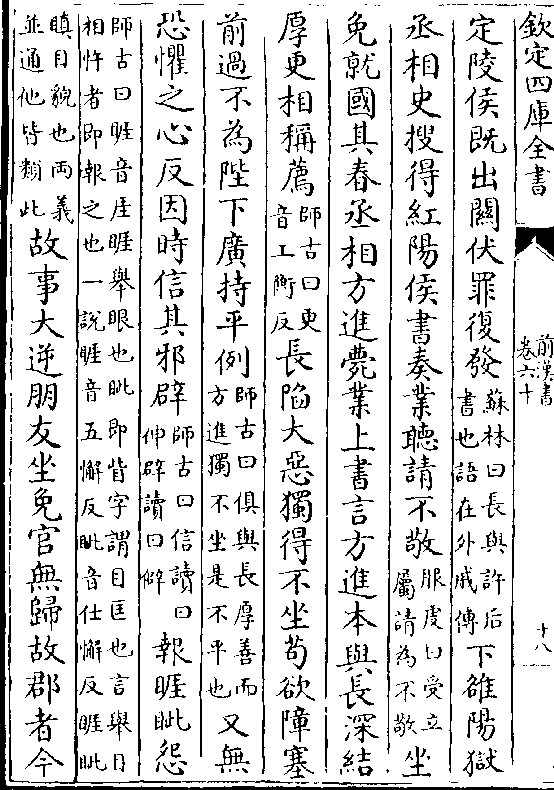 欽定四庫全書
前漢書
卷六十
十八
定陵侯既出關伏罪復發蘇林曰長與許后
書也語在外戚傳下雒陽獄
丞相史搜得紅陽侯書奏業聽請不敬服虔曰受立
屬請為不敬坐
免就國其春丞相方進薨業上書言方進本與長深結
厚更相稱薦師古曰更
音工衡反長陷大惡獨得不坐苟欲障塞
前過不為陛下廣持平例師古曰俱與長厚善而
方進獨不坐是不平也又無
恐懼之心反因時信其邪辟師古曰信讀曰
伸辟讀曰僻報睚眦怨
師古曰睚音厓睚舉眼也眦即眥字謂目匡也言舉目
相忤者即報之也一說睚音五懈反眦音仕懈反睚眦
瞋目貌也兩義
並通他皆類此故事大逆朋友坐免官無歸故郡者今